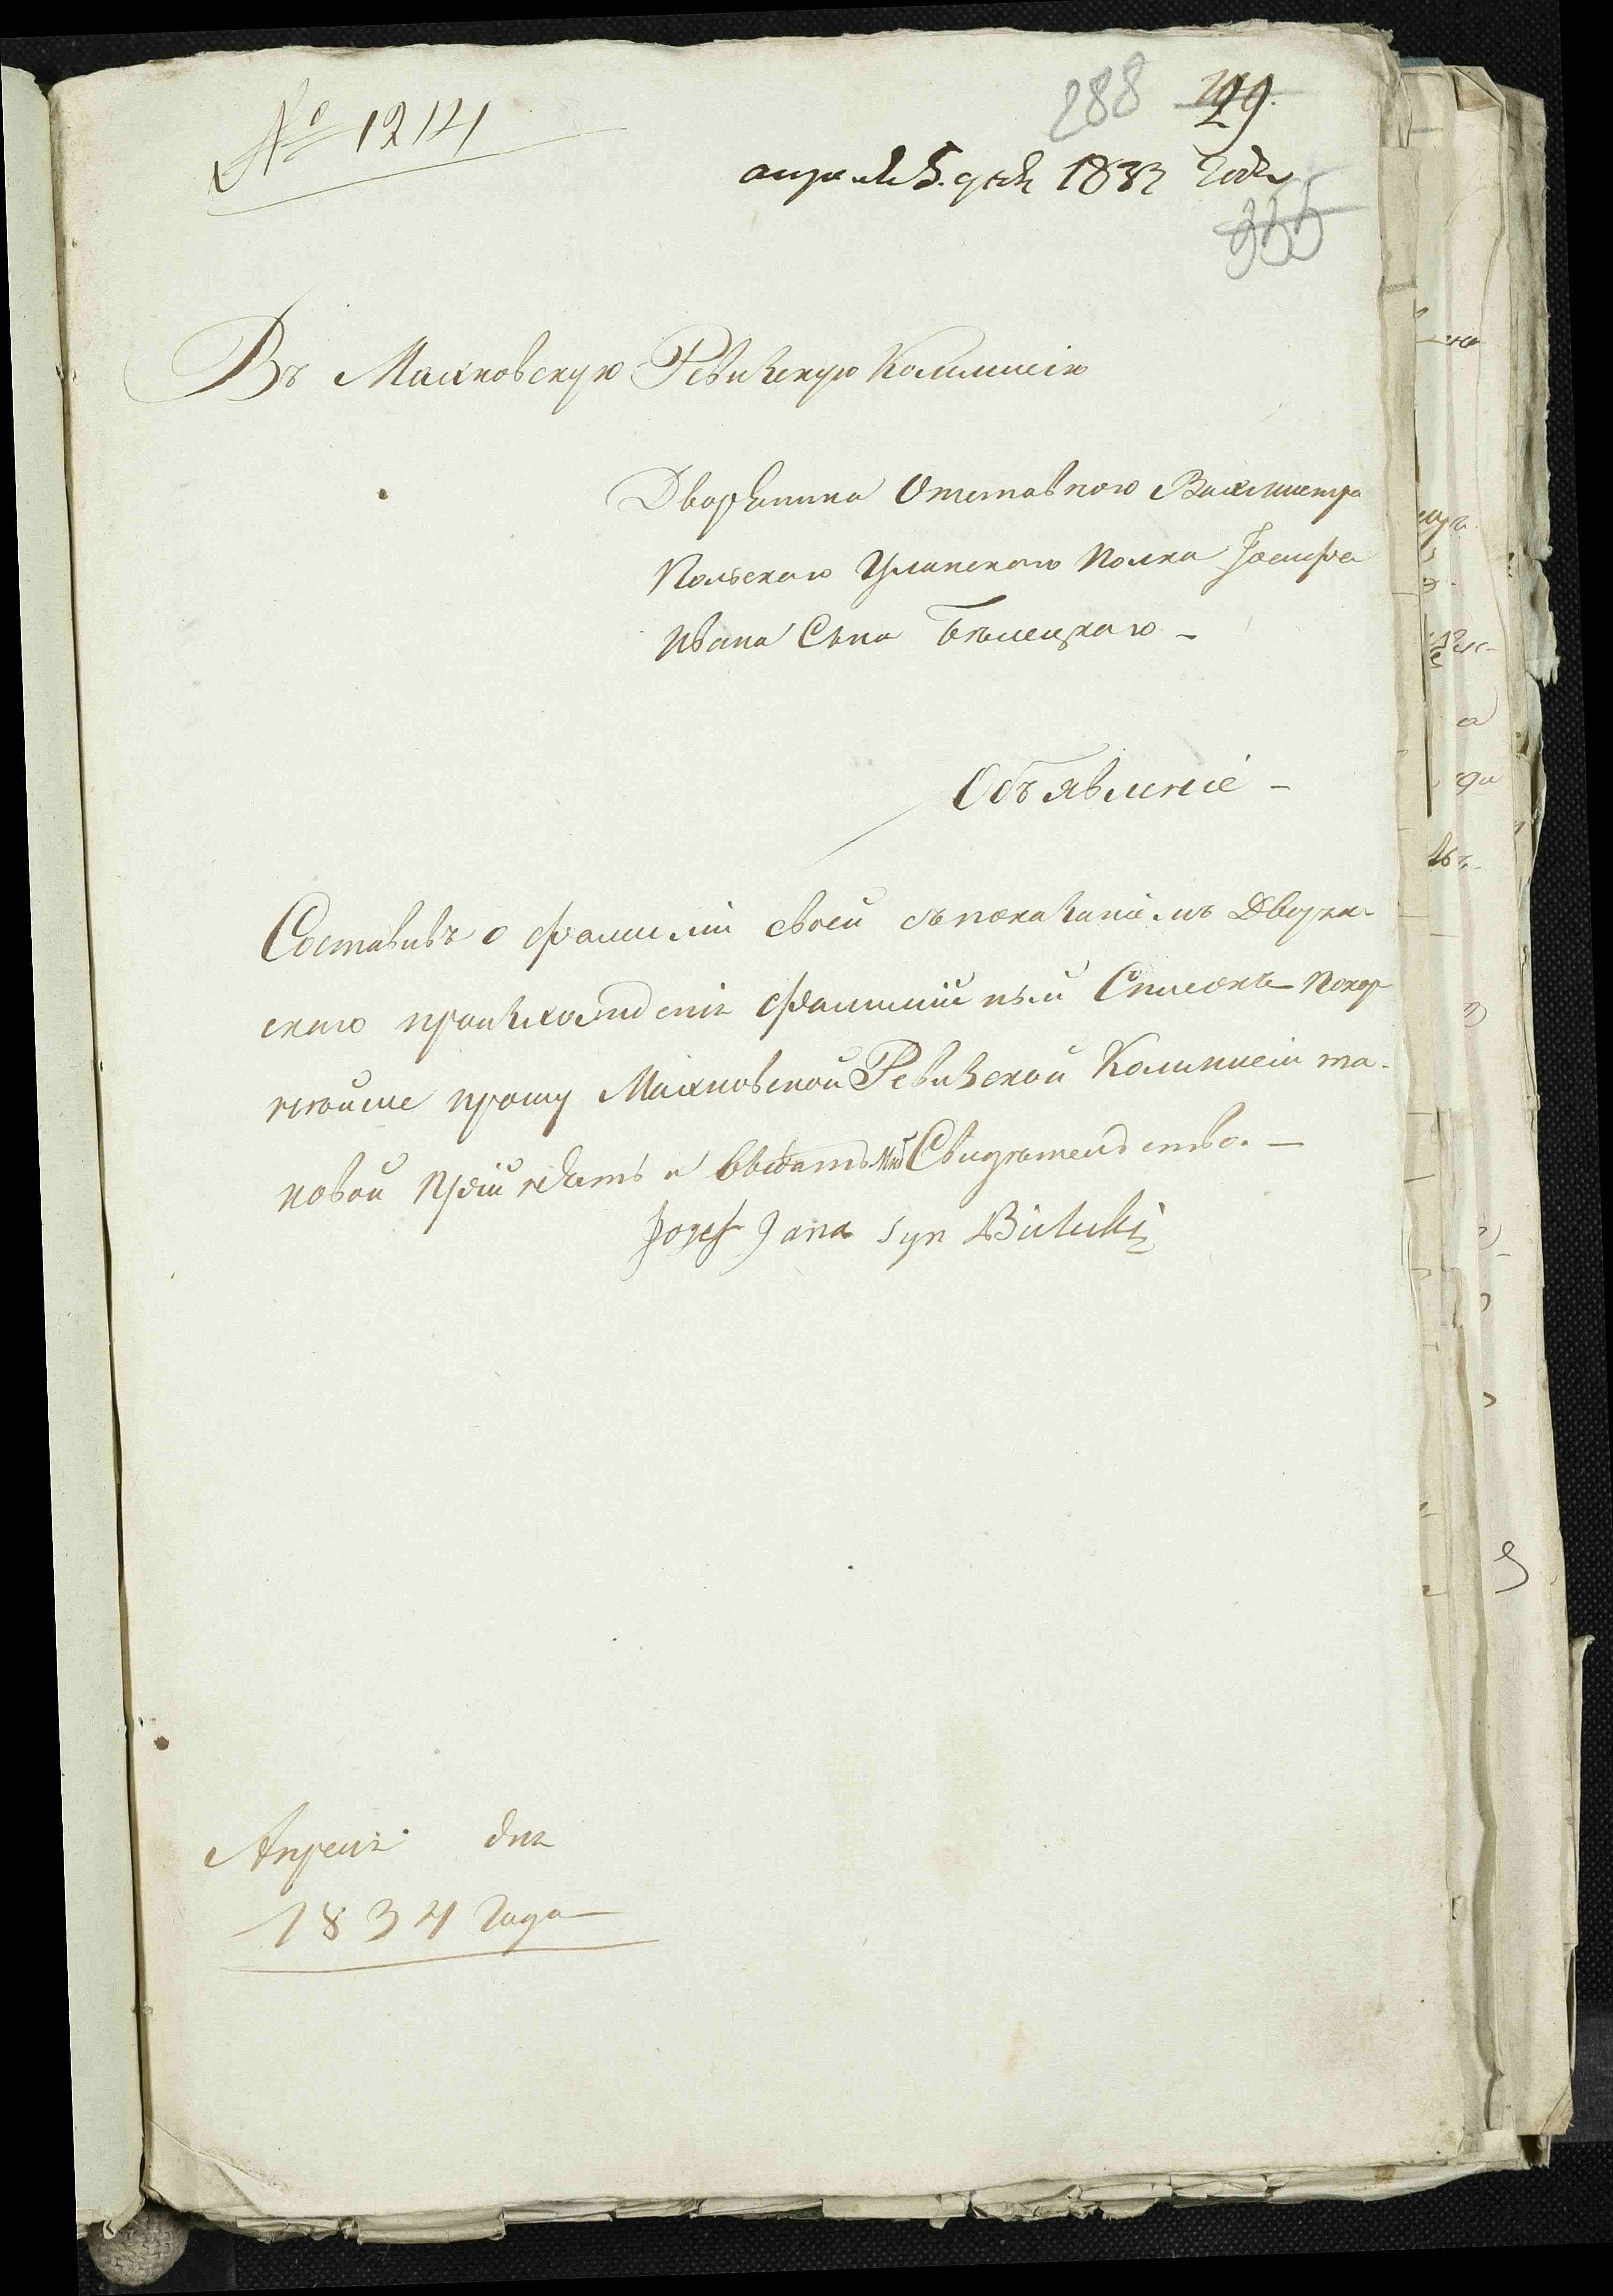 № 1214
288 29.
апреля 5. дня 1834 года
335
Въ Махновскую Ревизкую Коммисію
Дворянина Отставного Вахмистра
Польскаго Уланскаго Полка Іосифа
Ивана Сына Бѣлецкаго -
Объявленіе -
Составивъ о фамиліи своей съ показаніемъ Дворян-
скаго произхожденія Фамилійный Списокъ покор
нѣйше прошу Махновской Ревизской Коммисіи та-
ковой принять и выдать мнѣ Свидѣтельство. -
Jozef Jana Syn Bielecki
Апреля дня
1834 Года